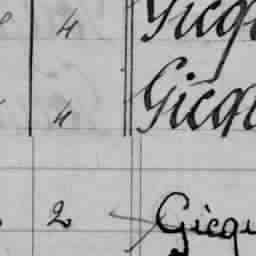 4 Gicq
4 Gicq
2 Gicq